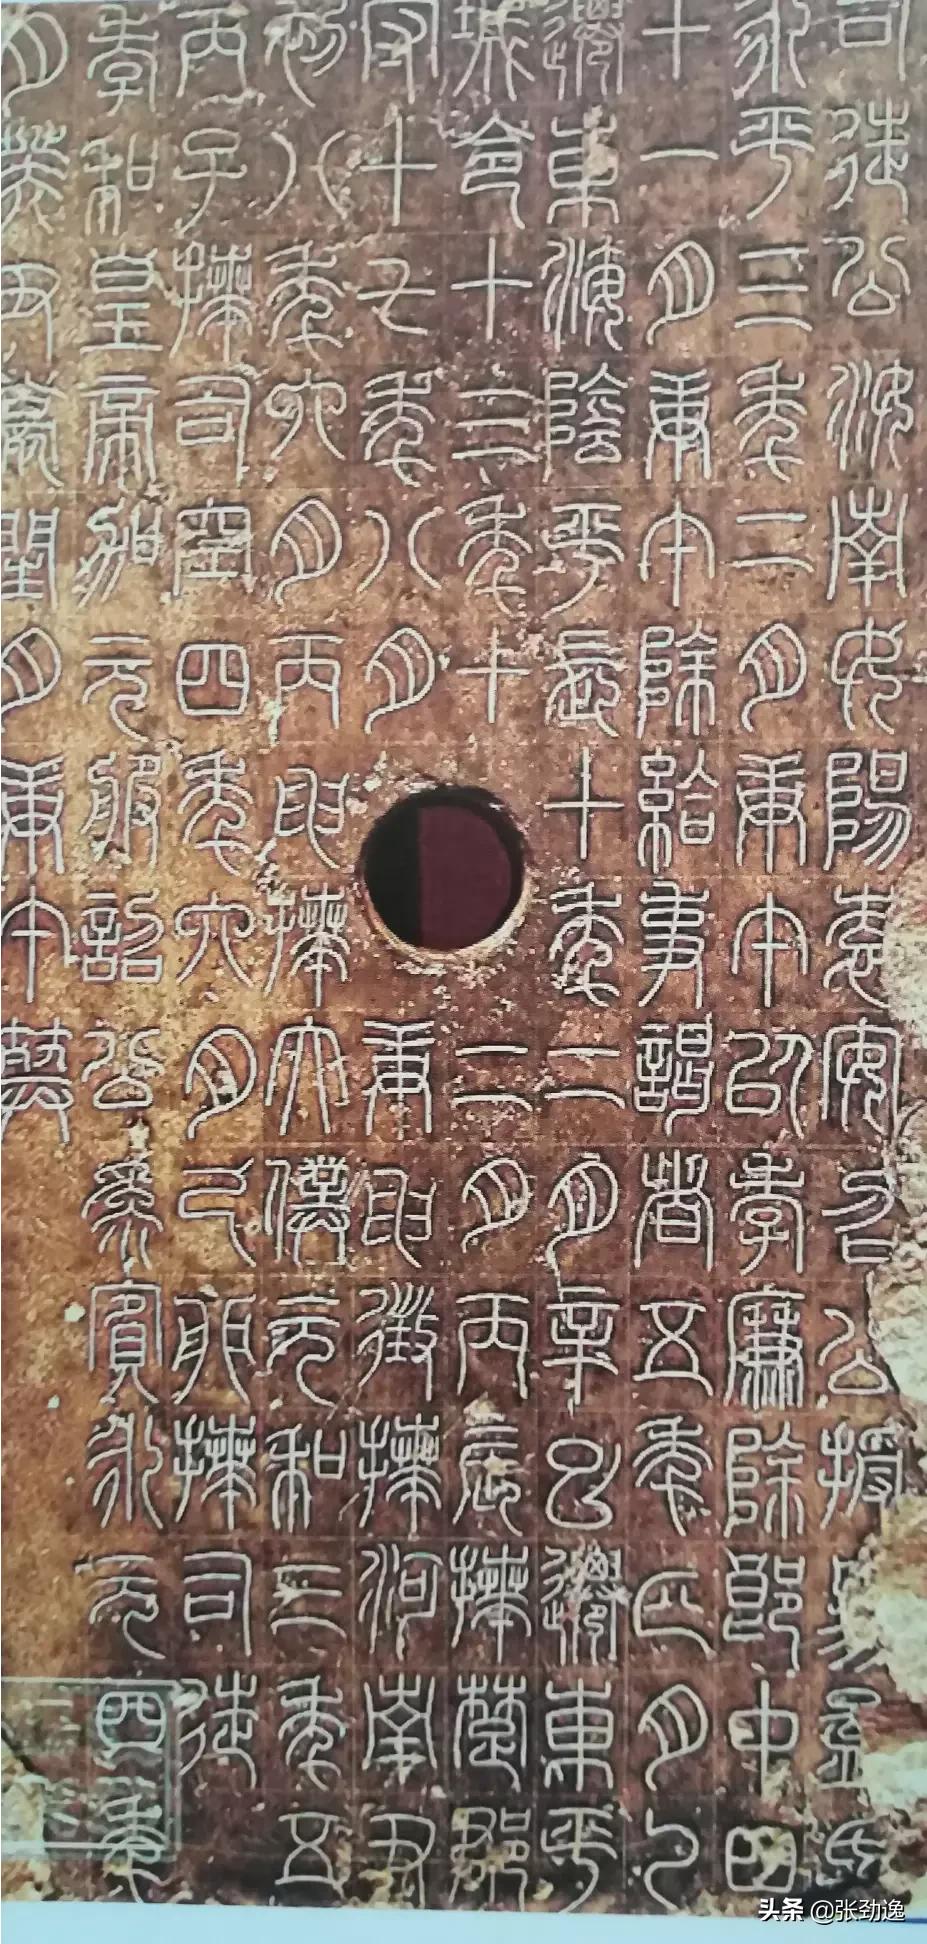 司徒公汝南女陽袁安召公授易孟氏
永平三年二月庚午以孝廉除郎中四
十一月庚午除給事謁者五年四月乙
遷東海陰平長十年二月辛巳遷東平
城令十三年十二月丙辰拜楚郡
守十七年八月庚申徵拜河南尹
初八年六月丙申拜太僕元和三年五
丙子拜司空四年六月己卯拜司徒
孝和皇帝加元服詔公為賓永元四年
月癸丑薨閏月庚午葬
头条 @张劲逸